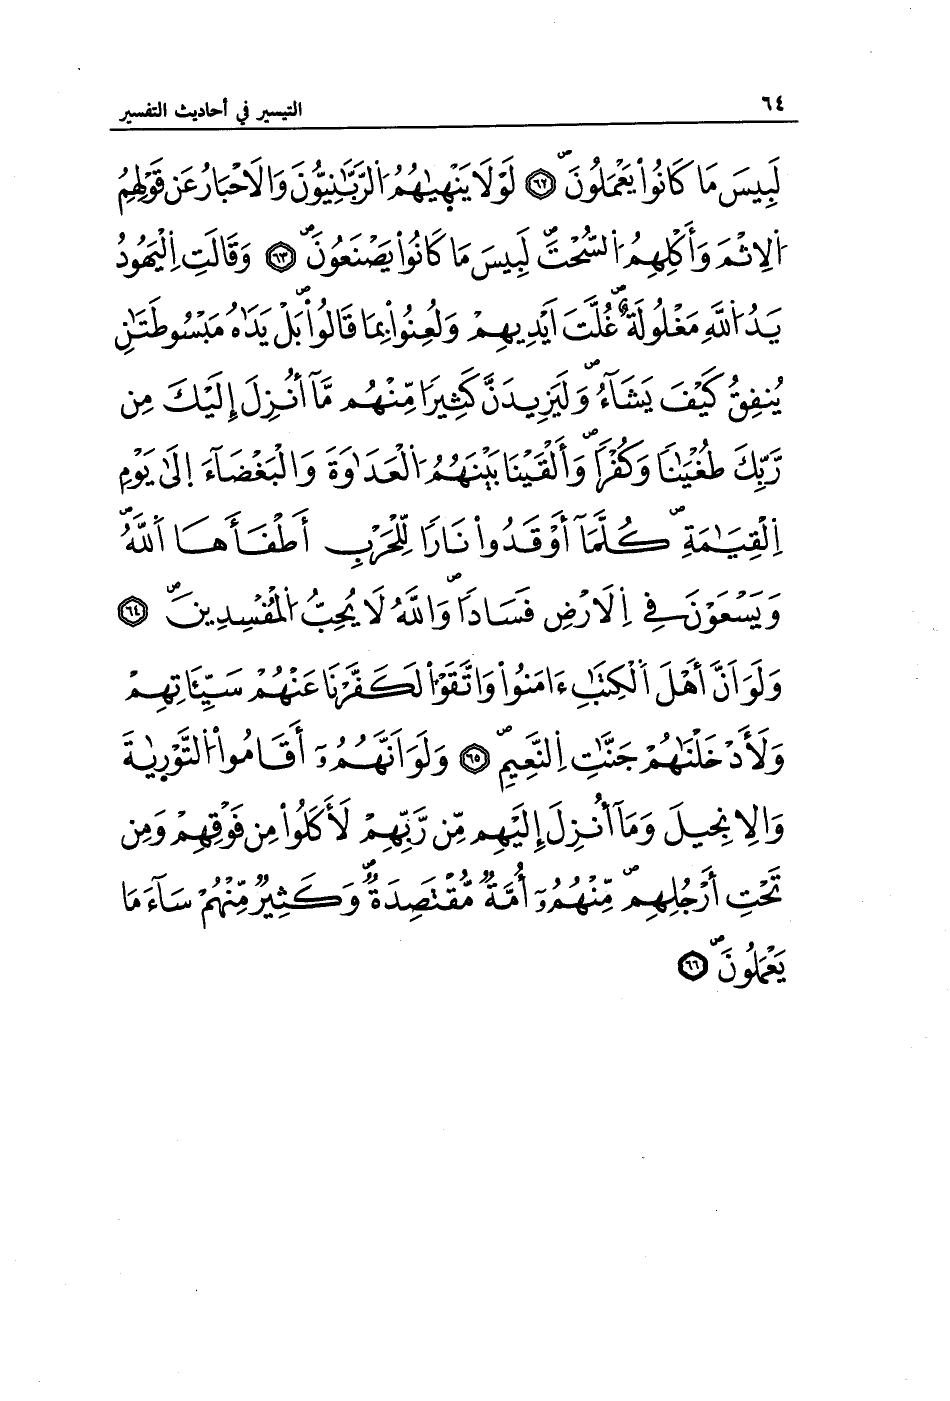 ٦٤ التيسير في أحاديث التفسير
لَبِيسَ مَا كَانُواْ يَعْمَلُونَ ۖ ٦٢ لَوْلَا يَنْهَىٰهُمُ اُلرَّبَّـٰنِيُّونَ وَالَاحْبَارُ عَن قَوْلِهِمُ
اُلِاثْمَ وَأَكْلِهِمُ اُلسُّحْتَ ۖ لَبِيسَ مَا كَانُواْ يَصْنَعُونَ ۖ ٦٣ وَقَالَتِ اِلْيَهُودُ
يَدُ اُللَّهِ مَغْلُولَةٌ ۖ غُلَّتَ اَيْدِيهِمْ وَلُعِنُواْ بِمَا قَالُواْ ۖ بَلْ يَدَاهُ مَبْسُوطَتَـٰنِ
يُنفِقُ كَيْفَ يَشَآءُ ۖ وَلَيَزِيدَنَّ كَثِيرًا مِّنْهُم مَّآ أُنزِلَ إِلَيْكَ مِن
رَّبِّكَ طُغْيَـٰنًا وَكُفْرًا ۖ وَأَلْقَيْنَا بَيْنَهُمُ اُلْعَدَٰوَةَ وَالْبَغْضَآءَ اِلَىٰ يَوْمِ
اِلْقِيَـٰمَةِ ۖ كُلَّمَآ أَوْقَدُواْ نَارًا لِّلْحَرْبِ أَطْفَأَهَا اَللَّهُ ۖ
وَيَسْعَوْنَ فِي اِلَارْضِ فَسَادًا ۖ وَاللَّهُ لَا يُحِبُّ اُلْمُفْسِدِينَ ۖ ٦٤
وَلَوَ اَنَّ أَهْلَ اَلْكِتَـٰبِ ءَامَنُواْ وَاتَّقَوْاْ لَكَفَّرْنَا عَنْهُمْ سَيِّـَٔاتِهِمْ
وَلَأَدْخَلْنَـٰهُمْ جَنَّـٰتِ اِلنَّعِيمِ ۖ ٦٥ وَلَوَ اَنَّهُمُۥٓ أَقَامُواْ اُلتَّوْرَىٰةَ
وَالِانجِيلَ وَمَآ أُنزِلَ إِلَيْهِم مِّن رَّبِّهِمْ لَأَكَلُواْ مِن فَوْقِهِمْ وَمِن
تَحْتِ أَرْجُلِهِم ۖ مِّنْهُمُۥٓ أُمَّةٌ مُّقْتَصِدَةٌ ۖ وَكَثِيرٌ مِّنْهُمْ سَآءَ مَا
يَعْمَلُونَ ۖ ٦٦